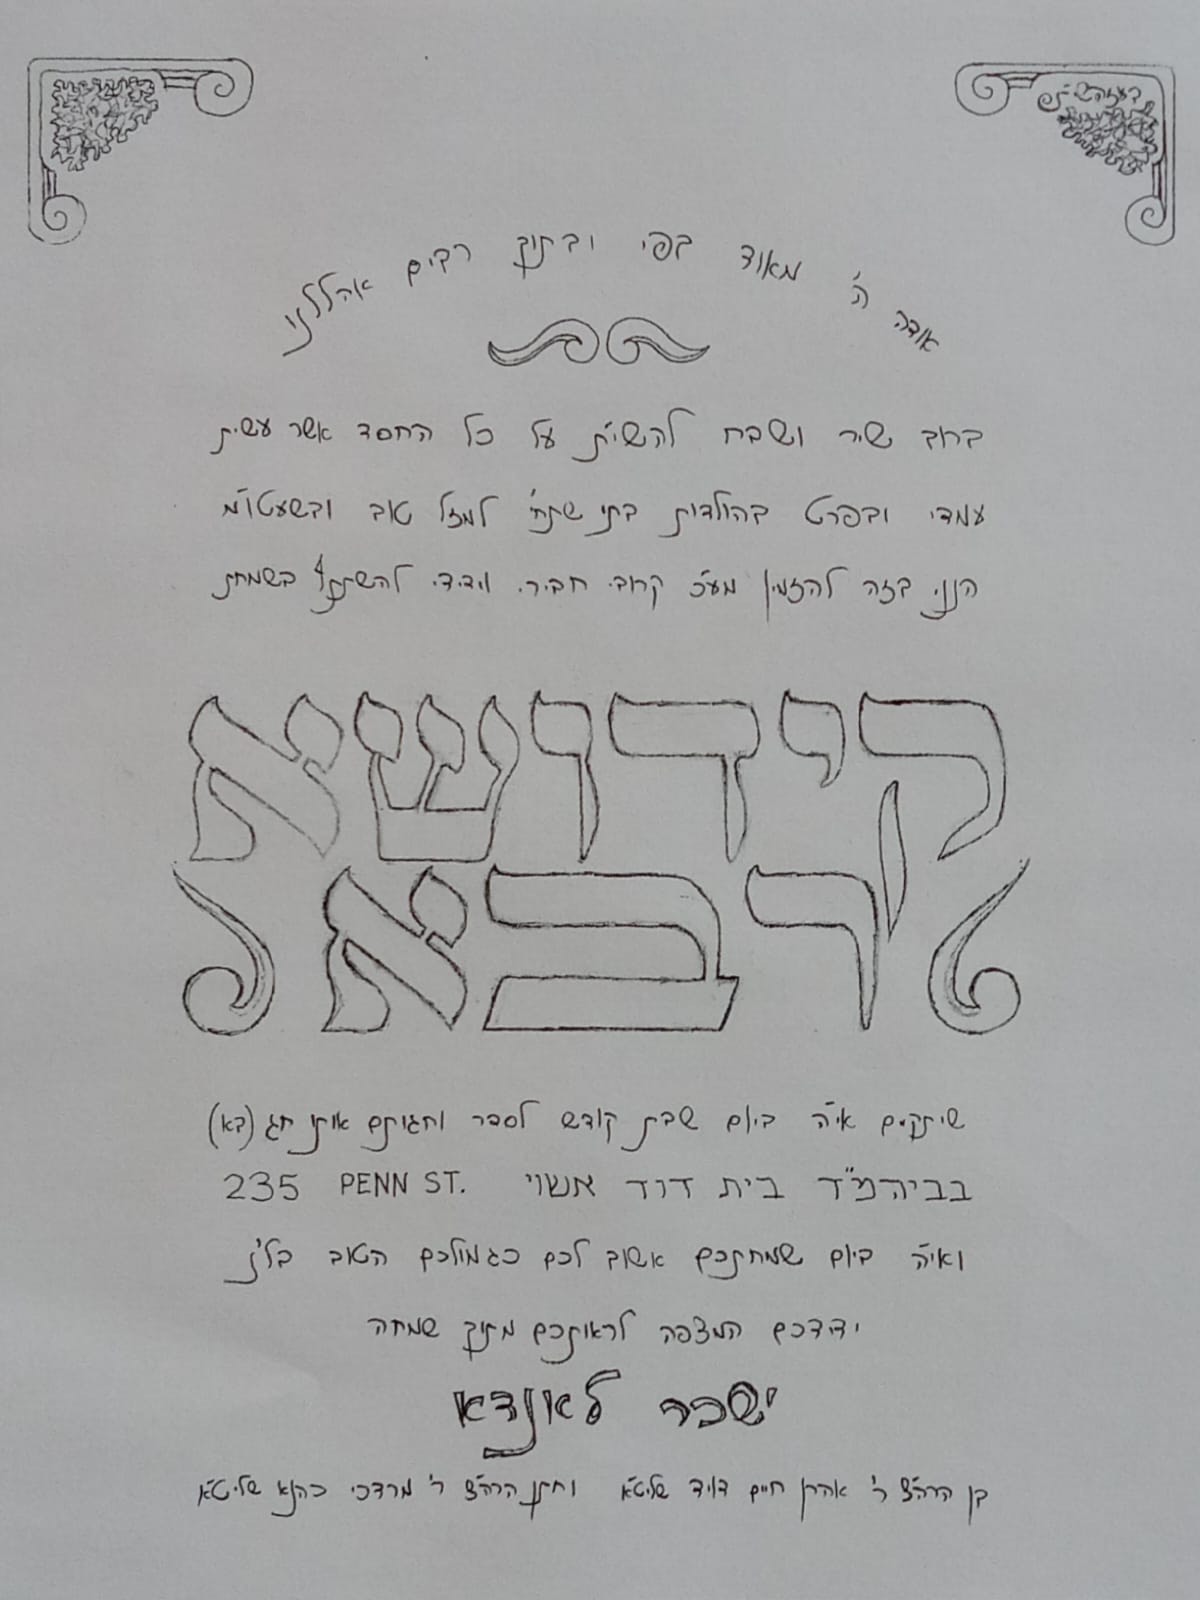 בעזהשי״ת
אודה ה' מאוד בפי ובתוך רבים אהללנו
ברוב שיר ושבח להשי״ת על כל החסד אשר עשית
עמדי ובפרט בהולדות בתי שתחי' למזל טוב ובשעטו״מ
הנני בזה להזמין מע״כ קרובי. חבירי. וידידי. להשתתף בשמחת
קידושא
רבא
שיתקיים אי״ה ביום שבת קודש לסדר וחגותם אותו חג (בא)
בביהמ״ד בית דוד אשוי 235 PENN ST.
ואי״ה ביום שמחתכם אשוב לכם כגמולכם הטוב בל״נ
ידידכם המצפה לראותכם מתוך שמחה
יששכר לאנדא
בן הרה״צ ר' אהרן חיים דויד שליט״א וחתן הרה״צ ר' מרדכי כהנא שליט״א